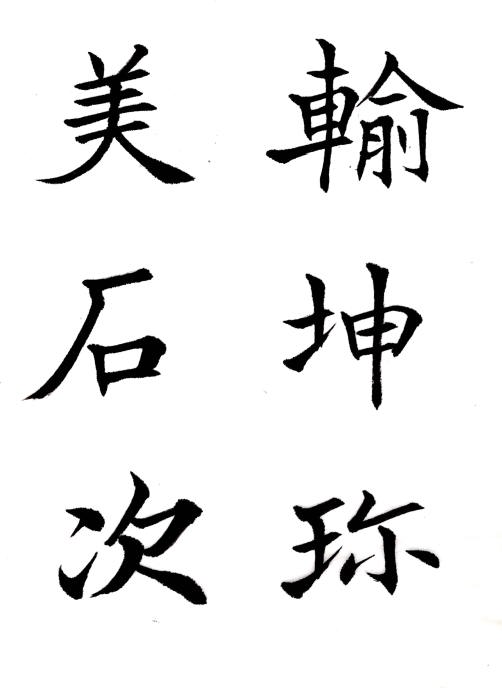 輸坤珎
美石次